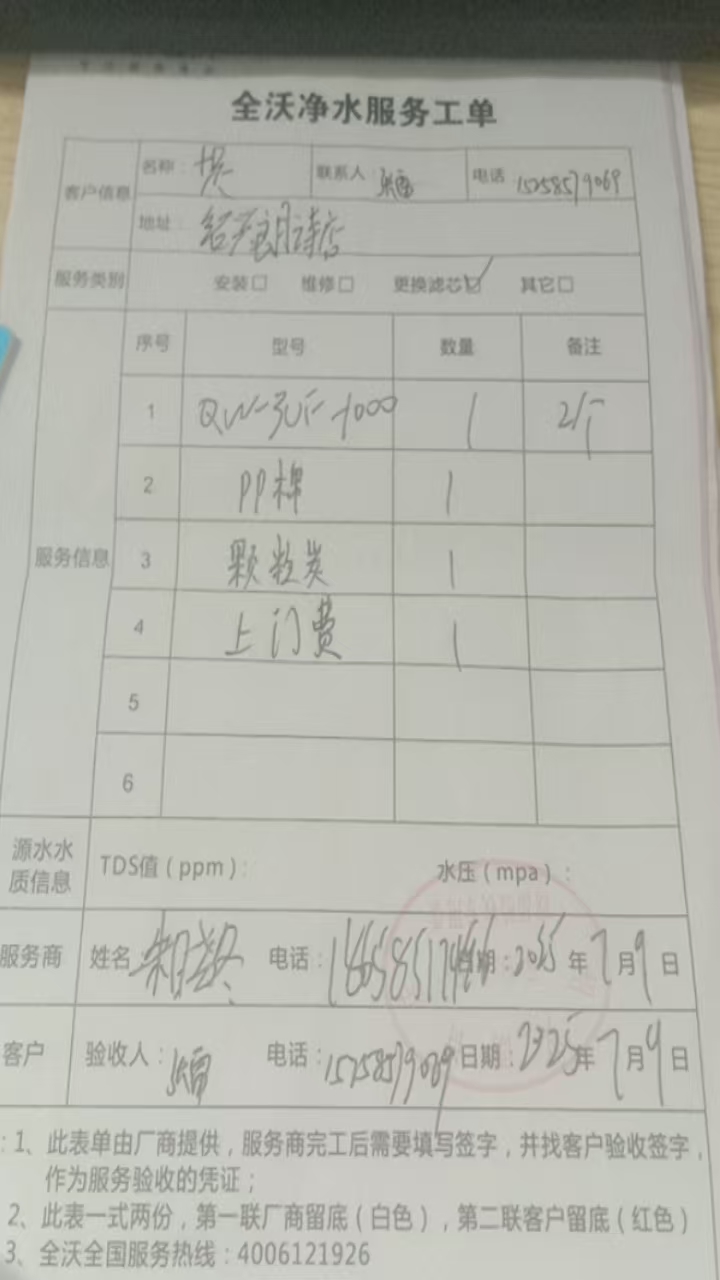 全沃净水服务工单
客户信息 名称： 联系人 张雷 电话 15758579069
地址： 绍兴朗诗店
服务类别 安装□ 维修□ 更换滤芯☑ 其它□
服务信息 序号 型号 数量 备注
1 QW-3UF-1000 1
2 PP棉 1
3 颗粒炭 1
4 上门费 1
5
6
源水水质信息 TDS值（ppm）： 水压（mpa）：
服务商 姓名 电话： 日期：2025年7月9日
客户 验收人： 张雷 电话：15758579069 日期：2025年7月9日
：1、此表单由厂商提供，服务商完工后需要填写签字，并找客户验收签字，
作为服务验收的凭证；
2、此表一式两份，第一联厂商留底（白色），第二联客户留底（红色）
3、全沃全国服务热线：4006121926